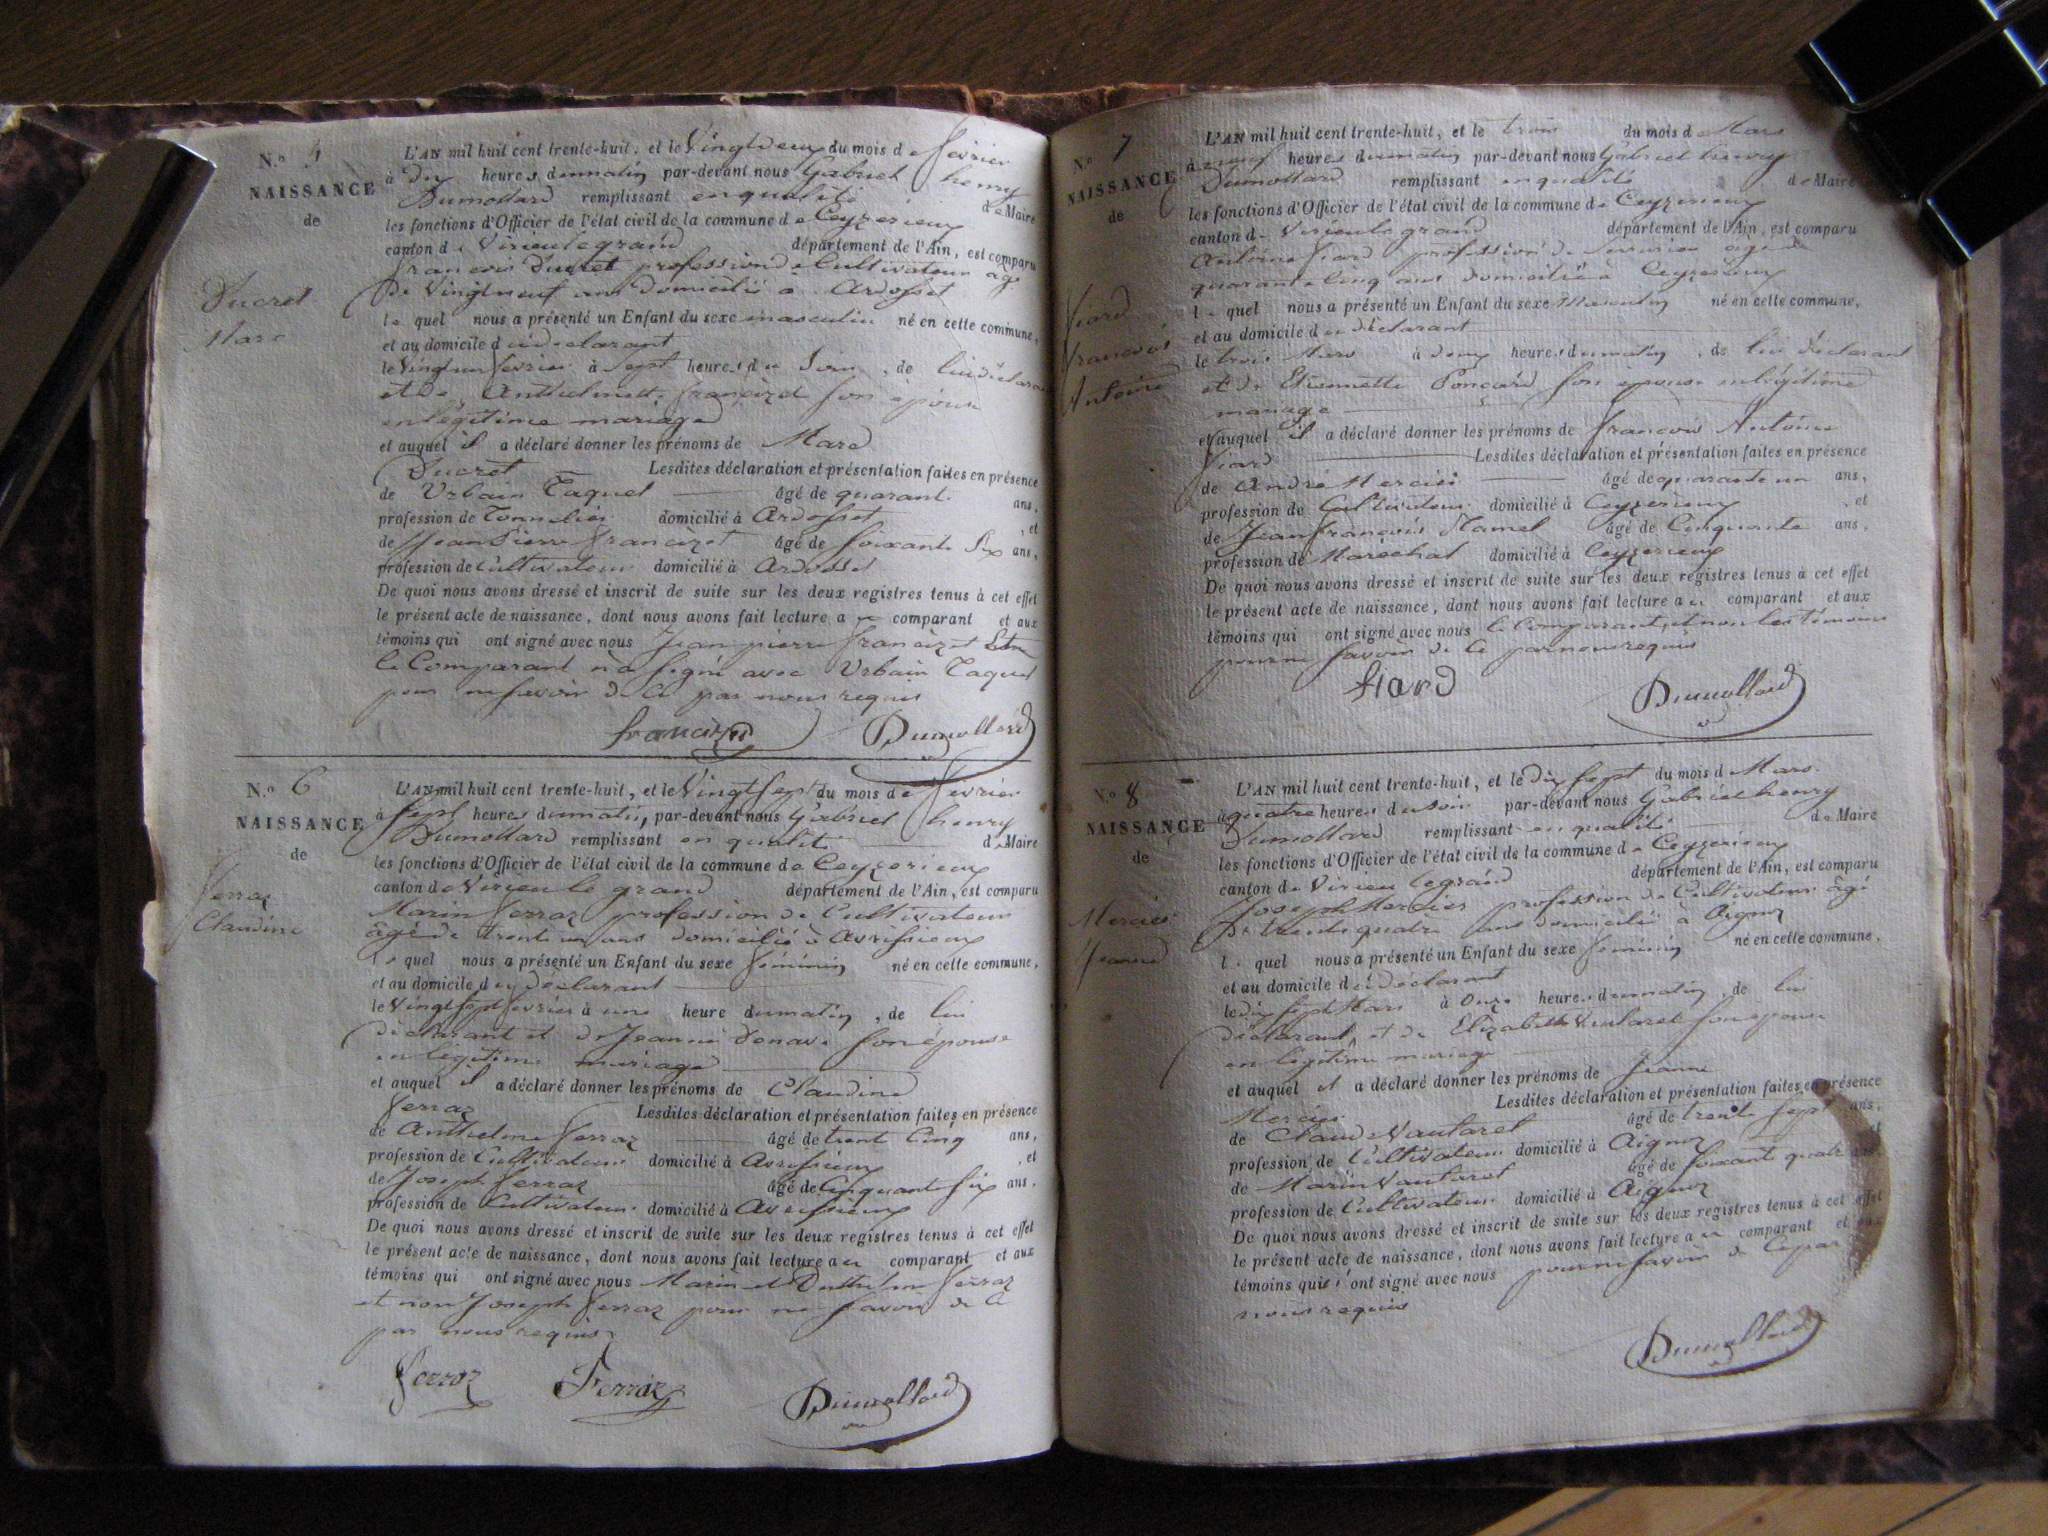 N.º
NAISSANCE
de
Ducret
Marc
L'AN mil huit cent trente-huit, et le Vingtdeux du mois de février
à dix heures du matin par-devant nous Gabriel henry
Dumollard remplissant en qualité de Maire
les fonctions d'Officier de l'état civil de la commune de Ceyzerieux
canton de Virieu le grand département de l'Ain, est comparu
francois Ducret profession de Cultivateur agé
De Vingtneuf ans Domicilié a Ardosset
le quel nous a présenté un Enfant du sexe masculin né en cette commune,
et au domicile du declarant
le Vingt un fevrier à Sept heures du Soir, de lui déclarant
et de Anthelmette francizet son épouse
en légitime mariage
et auquel il a déclaré donner les prénoms de Marc
Ducret Lesdites déclaration et présentation faites en présence
de Urbain Taquet âgé de quarante ans,
profession de Tonnelier domicilié à Ardosset, et
de Jean Pierre francizet âgé de soixante Six ans,
profession de Cultivateur domicilié à Ardosset
De quoi nous avons dressé et inscrit de suite sur les deux registres tenus à cet effet
le présent acte de naissance, dont nous avons fait lecture au comparant et aux
témoins qui ont signé avec nous Jean pierre francizet
le Comparant n'a signé avec Urbain Taquet
pour ne savoir de ce par nous requis
francizet Dumollard
N.º 6
NAISSANCE
de
ferraz
Claudine
L'AN mil huit cent trente-huit, et le Vingt sept du mois de février
à sept heures du matin, par-devant nous Gabriel henry
Dumollard remplissant en qualité de Maire
les fonctions d'Officier de l'état civil de la commune de Ceyzerieux
canton de Virieu le grand département de l'Ain, est comparu
Marin ferraz profession de Cultivateur
âgé de trente un ans domicilié à Avrissieux
le quel nous a présenté un Enfant du sexe féminin né en cette commune,
et au domicile du déclarant
le Vingt sept fevrier à une heure du matin, de lui
déclarant et de Jeanne son épouse
en légitime mariage
et auquel il a déclaré donner les prénoms de Claudine
ferraz Lesdites déclaration et présentation faites en présence
de Anthelme ferraz âgé de trent Cinq ans,
profession de Cultivateur domicilié à Avrissieux, et
de Joseph ferraz âgé de Cinquante six ans,
profession de Cultivateur domicilié à Avrissieux
De quoi nous avons dressé et inscrit de suite sur les deux registres tenus à cet effet
le présent acte de naissance, dont nous avons fait lecture au comparant et aux
témoins qui ont signé avec nous Marin et Anthelme ferraz
et non Joseph ferraz pour ne savoir de ce
par nous requis
ferraz Ferraz Dumollard
N.º 7
NAISSANCE
de
fiard
francois
Antoine
L'AN mil huit cent trente-huit, et le trois du mois de Mars
à neuf heures du matin par-devant nous Gabriel henry
Dumollard remplissant en qualité de Maire
les fonctions d'Officier de l'état civil de la commune de Ceyzerieux
canton de Virieu le grand département de l'Ain, est comparu
Antoine fiard profession de agé de
quarante cinq ans domicilié à Ceyzerieux
le quel nous a présenté un Enfant du sexe Masculin né en cette commune,
et au domicile du déclarant
le trois Mars à deux heures du matin, de lui déclarant
et de Etiennette Poncard son épouse en légitime
mariage
et auquel il a déclaré donner les prénoms de francois Antoine
fiard Lesdites déclaration et présentation faites en présence
de André Mercier âgé de quarante un ans,
profession de Cultivateur domicilié à Ceyzerieux, et
de Jean francois Mamel âgé de Cinquante ans,
profession de Maréchal domicilié à Ceyzerieux
De quoi nous avons dressé et inscrit de suite sur les deux registres tenus à cet effet
le présent acte de naissance, dont nous avons fait lecture au comparant et aux
témoins qui ont signé avec nous le Comparant, et non les témoins
pour ne savoir de ce par nous requis
fiard Dumollard
N.º 8
NAISSANCE
de
Mercier
Jeanne
L'AN mil huit cent trente-huit, et le dix sept du mois de Mars
à quatre heures du soir par-devant nous Gabriel henry
Dumollard remplissant en qualité de Maire
les fonctions d'Officier de l'état civil de la commune de Ceyzerieux
canton de Virieu le grand département de l'Ain, est comparu
Joseph Mercier profession de Cultivateur âgé
De trente quatre ans domicilié à Aignoz
le quel nous a présenté un Enfant du sexe féminin né en cette commune,
et au domicile du déclarant
le dix sept Mars à Onze heures du matin, de lui
déclarant et de Elizabeth Vautaret son épouse
en légitime mariage
et auquel il a déclaré donner les prénoms de Jeanne
Mercier Lesdites déclaration et présentation faites en présence
de Claude Vautaret âgé de trente sept ans,
profession de Cultivateur domicilié à Aignoz et
de Marin Vautaret âgé de soixante quatre ans
profession de Cultivateur domicilié à Aignoz
De quoi nous avons dressé et inscrit de suite sur les deux registres tenus à cet effet
le présent acte de naissance, dont nous avons fait lecture au comparant et aux
témoins qui n'ont signé avec nous pour ne savoir de ce par
nous requis
Dumollard